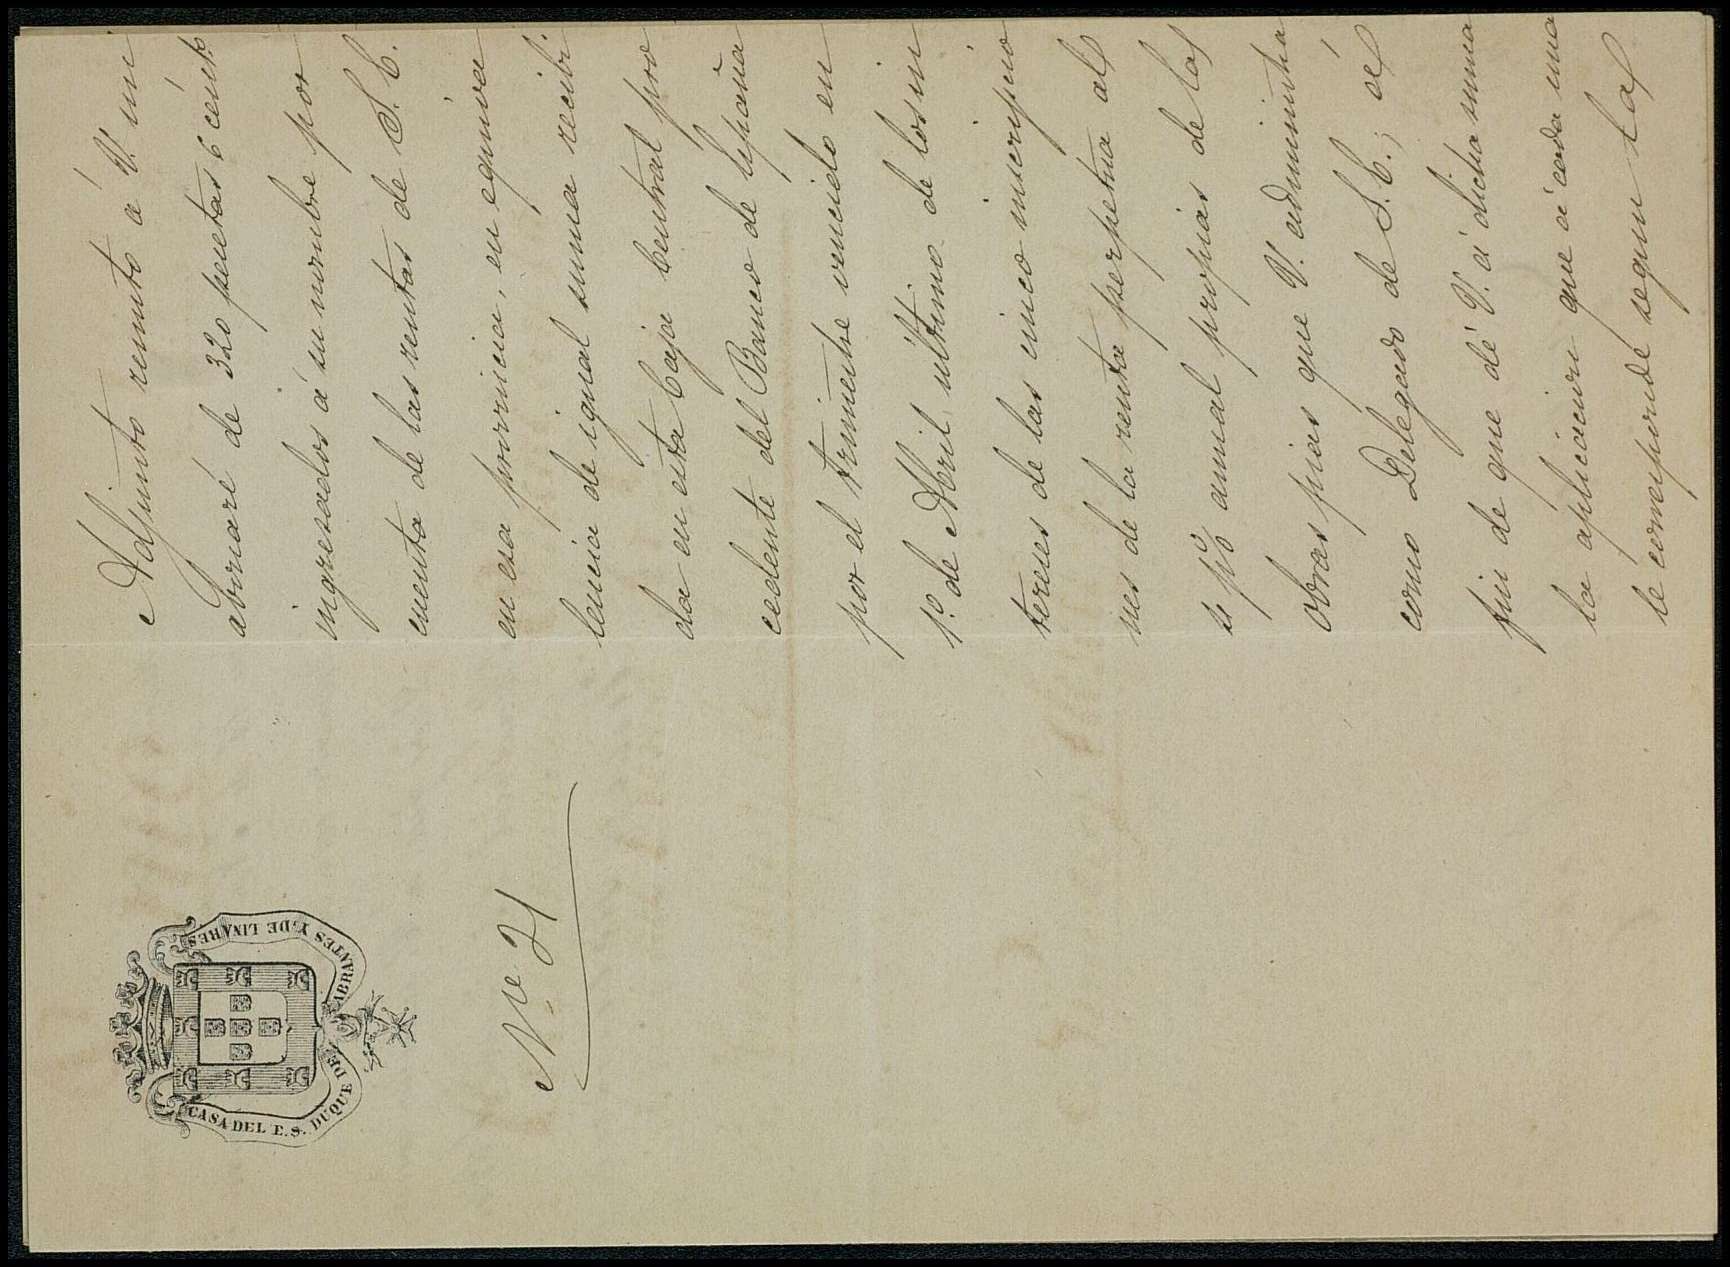 CASA DEL E. S. DUQUE DE ABRANTES Y DE LINARES
Nº 21
Adjunto remito á V. un
abonaré de 320 pesetas 6 cénts
ingresados á su nombre por
cuenta de las rentas de S. E.
en esa provincia, en equiva
lencia de igual suma recibi
da en esta Caja Central pro
cedente del Banco de España
por el trimestre vencido en
1º. de Abril último de los in
tereses de las cinco inscripcio
nes de la renta perpetua al
4 p% anual propias de las
obras pias que V. administra
como Delegado de S. E.; al
fin de que dé V. á dicha suma
la aplicacion que á cada una
le corresponde segun las